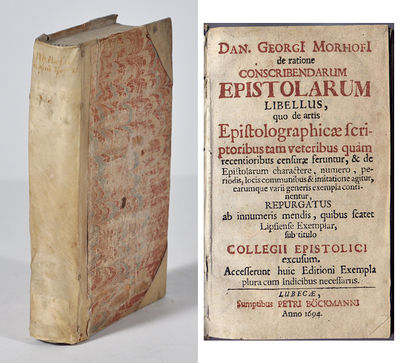 DAN. GEORGI MORHOFI
de ratione
CONSCRIBENDARUM
EPISTOLARUM
LIBELLUS,
quo de artis
Epistolographicæ scri-
ptoribus tam veteribus quàm
recentioribus censuræ feruntur, & de
Epistolarum charactere, numero, pe-
riodis, locis communibus & imitatione agitur,
earumque varii generis exempla conti-
nentur,
REPURGATUS
ab innumeris mendis, quibus scatet
Lipsiense Exemplar,
sub titulo
COLLEGII EPISTOLICI
excusum.
Accesserunt huic Editioni Exempla
plura cum Indicibus necessariis.
LUBECÆ,
Sumptibus PETRI BÖCKMANNI
Anno 1694.